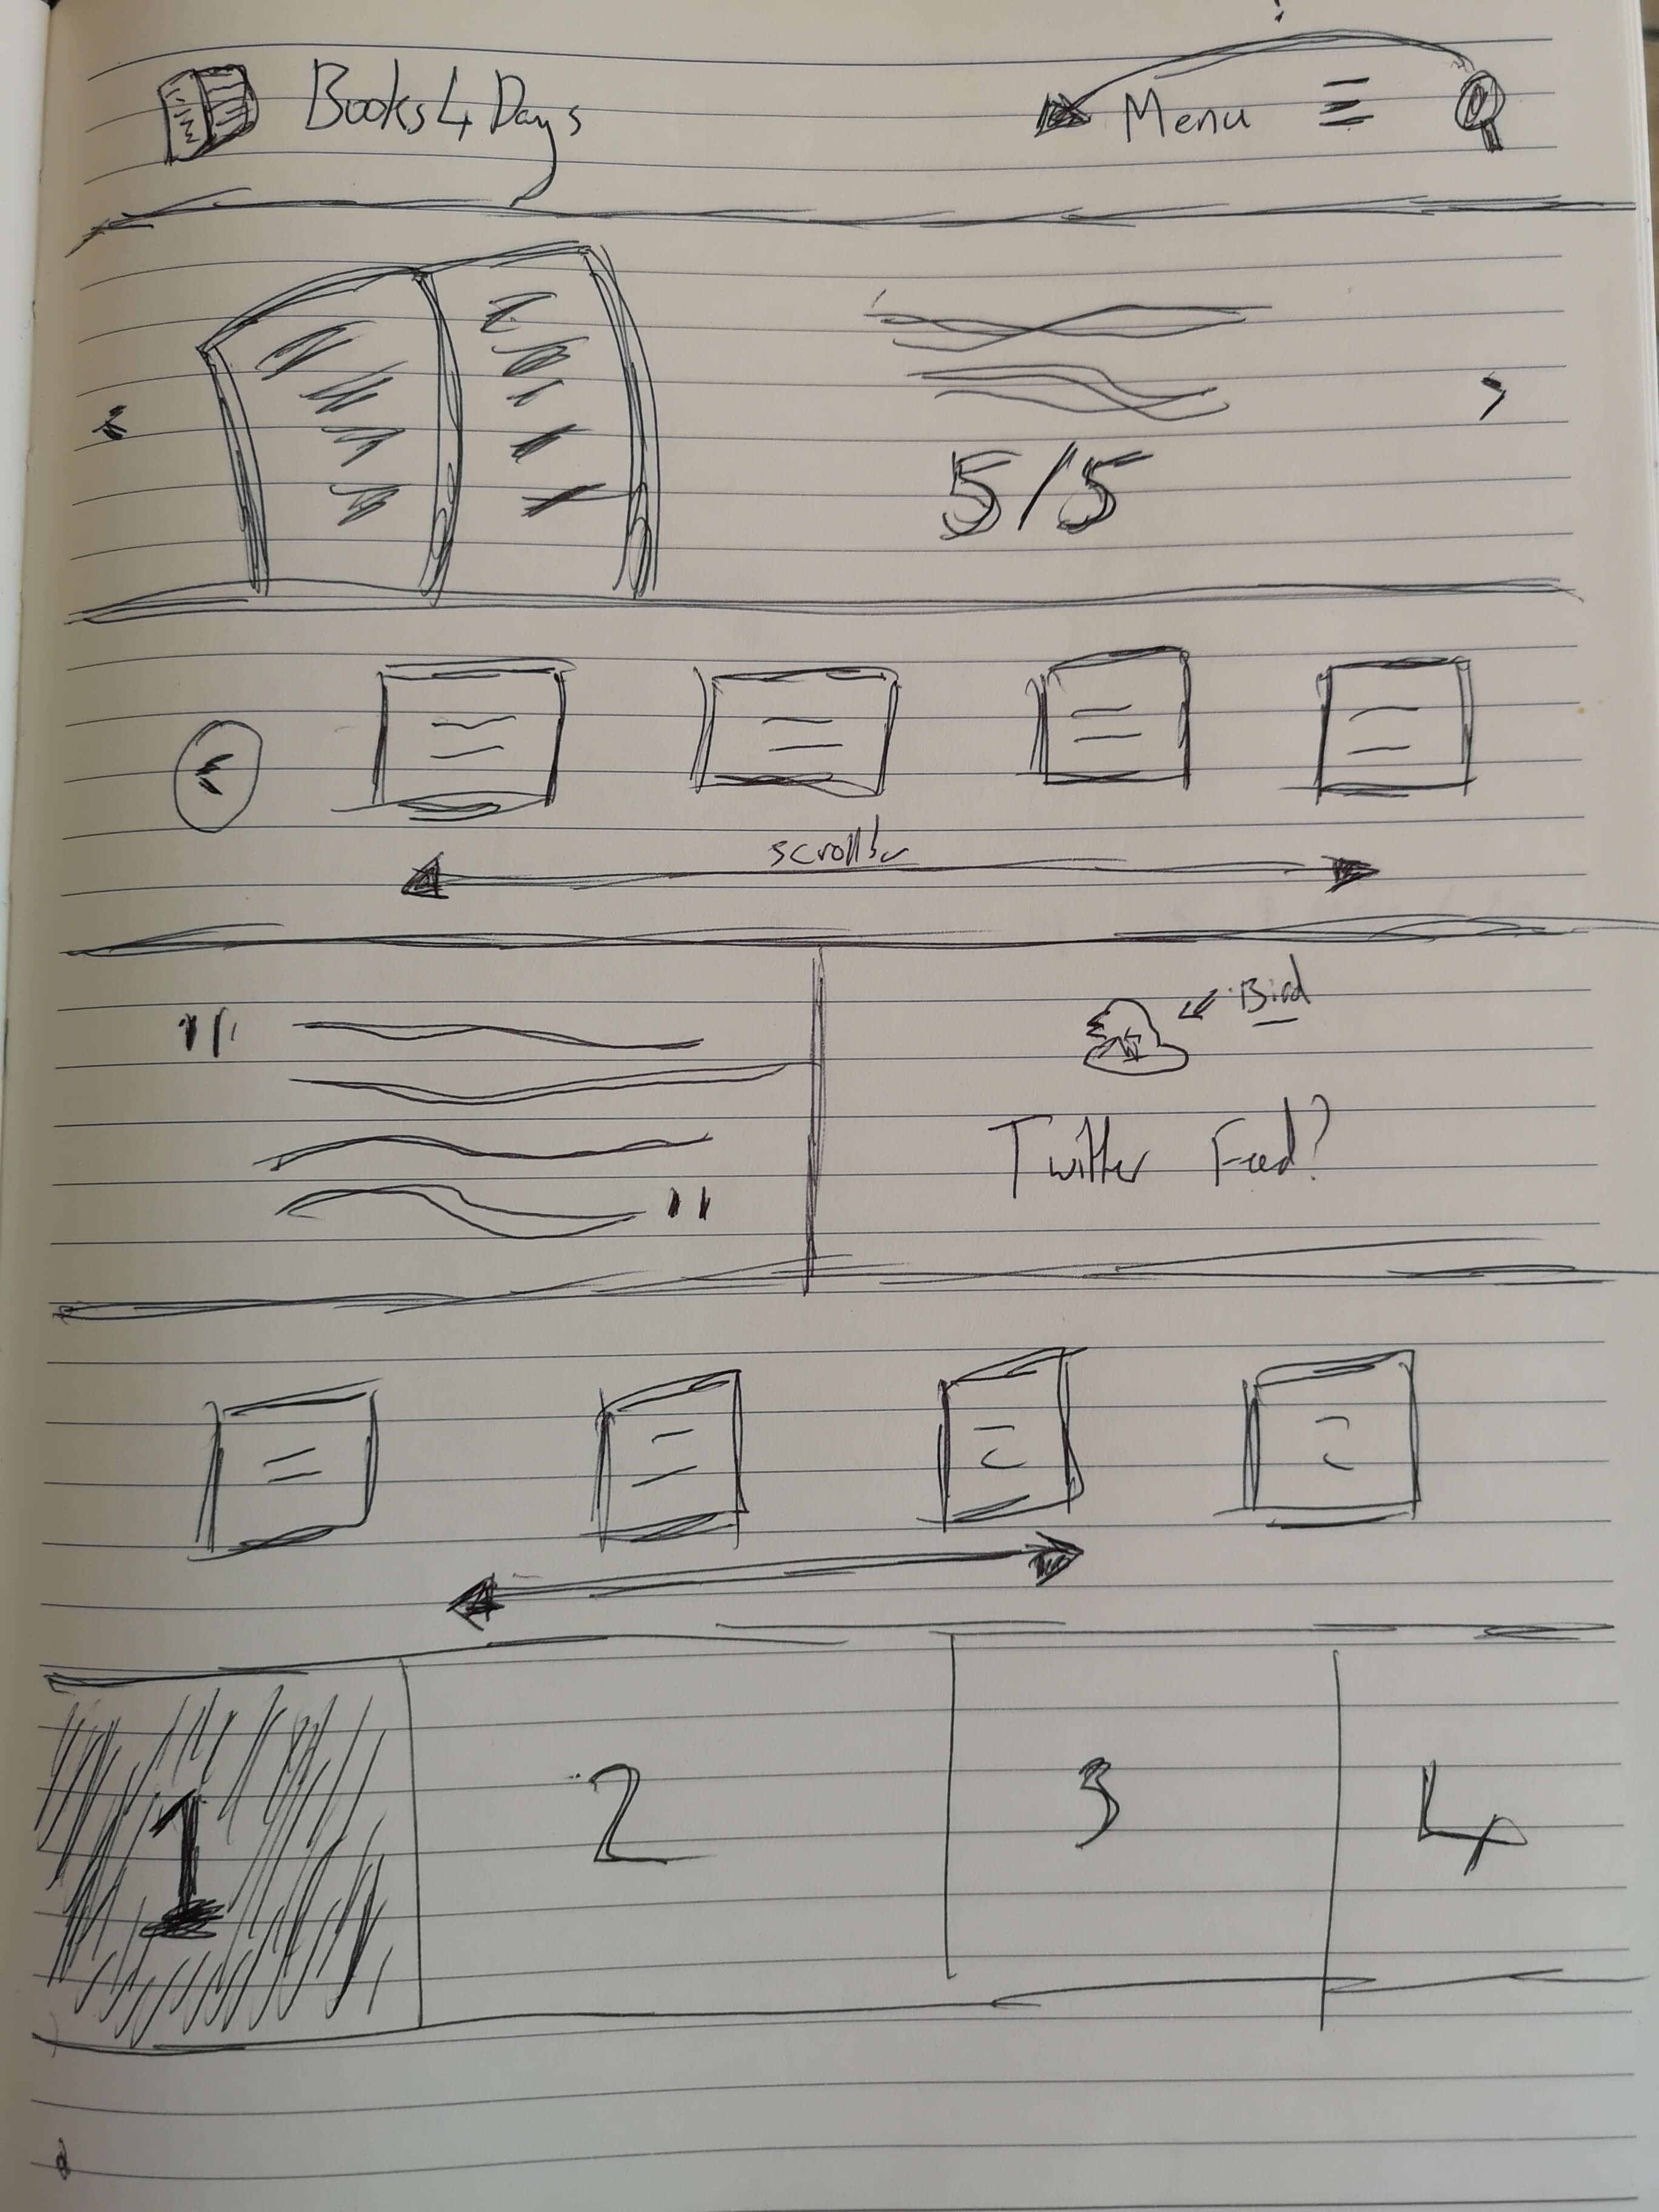 Books4Days
Menu
5/5
Bird
Twitter Feed?
1 2 3 4